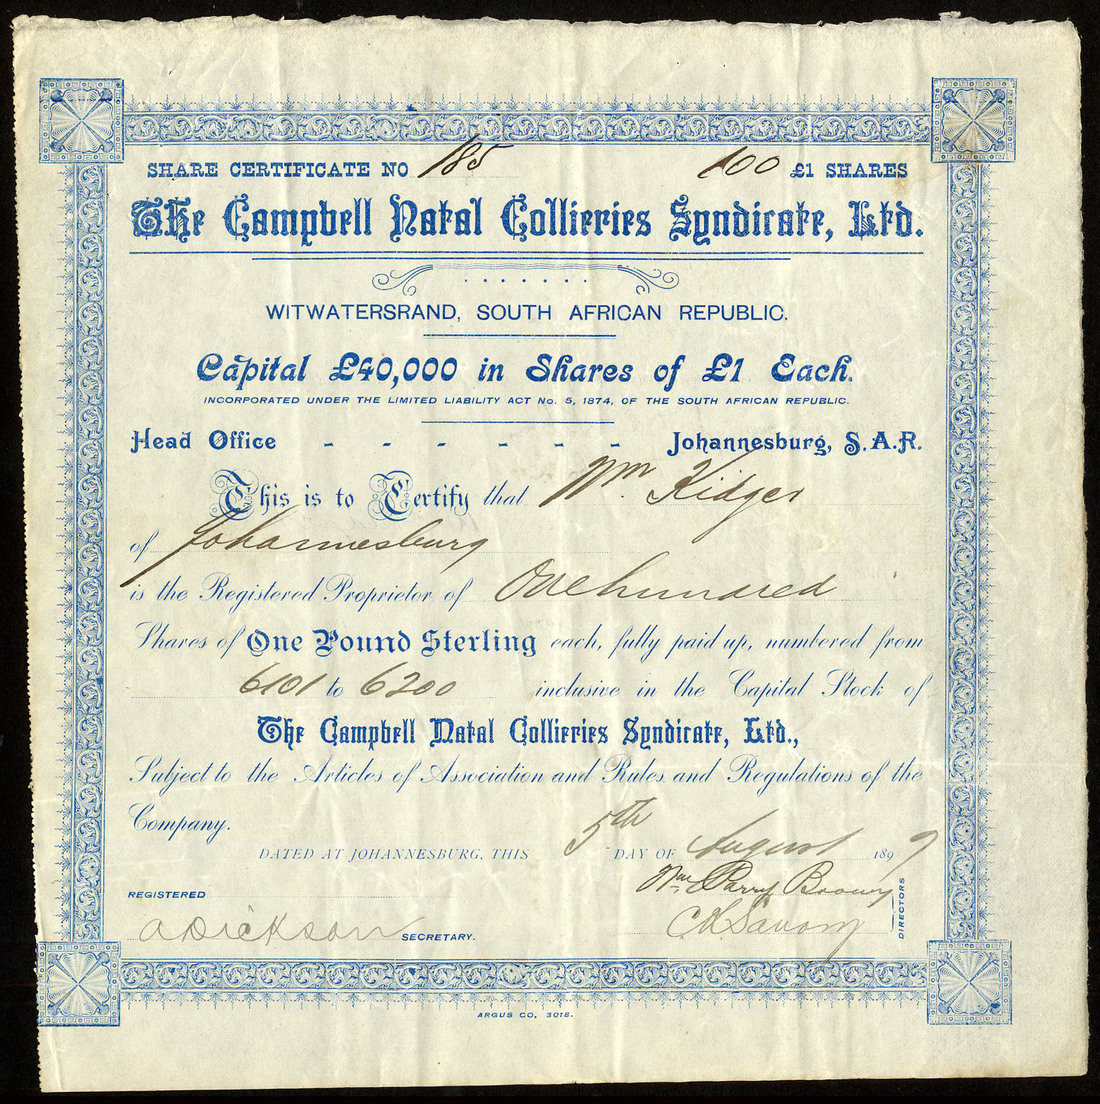 SHARE CERTIFICATE NO 185 100 £1 SHARES
The Campbell Natal Collieries Syndicate, Ltd.
WITWATERSRAND, SOUTH AFRICAN REPUBLIC.
Capital £40,000 in Shares of £1 Each.
INCORPORATED UNDER THE LIMITED LIABILITY ACT No. 5, 1874, OF THE SOUTH AFRICAN REPUBLIC.
Head Office - - - - - - Johannesburg, S.A.R.
This is to Certify that Wm. Kidger
of Johannesburg
is the Registered Proprietor of One hundred
Shares of One Pound Sterling each, fully paid up, numbered from
6101 to 6200 inclusive in the Capital Stock of
The Campbell Natal Collieries Syndicate, Ltd.,
Subject to the Articles of Association and Rules and Regulations of the
Company.
DATED AT JOHANNESBURG, THIS 5th DAY OF August 1897
REGISTERED
Wm. Parry
A Dickson SECRETARY.
DIRECTORS
ARGUS CO, 3018.